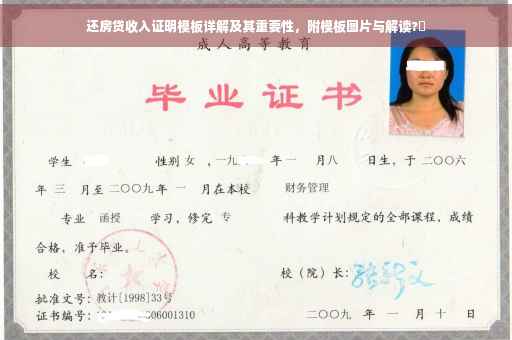 还房贷收入证明模板详解及其重要性，附模板图片与解读?
成人高等教育
毕业证书
学生 性别 女 ，一九 年 一 月 八 日生，于 二〇〇六
年 三 月至 二〇〇九 年 一 月在本校 财务管理
专业 函授 学习，修完 专 科教学计划规定的全部课程，成绩
合格，准予毕业。
校 名： 校（院）长：
批准文号：教计[1998]33号
证书编号： 06001310 二〇〇九 年 一 月 十 日